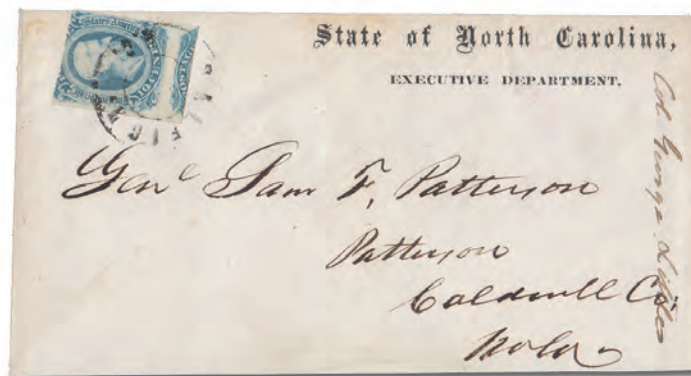 State of North Carolina,
EXECUTIVE DEPARTMENT.
Genl Sam F. Patterson
Patterson
Caldwell Co.
No Ca
Col George Little